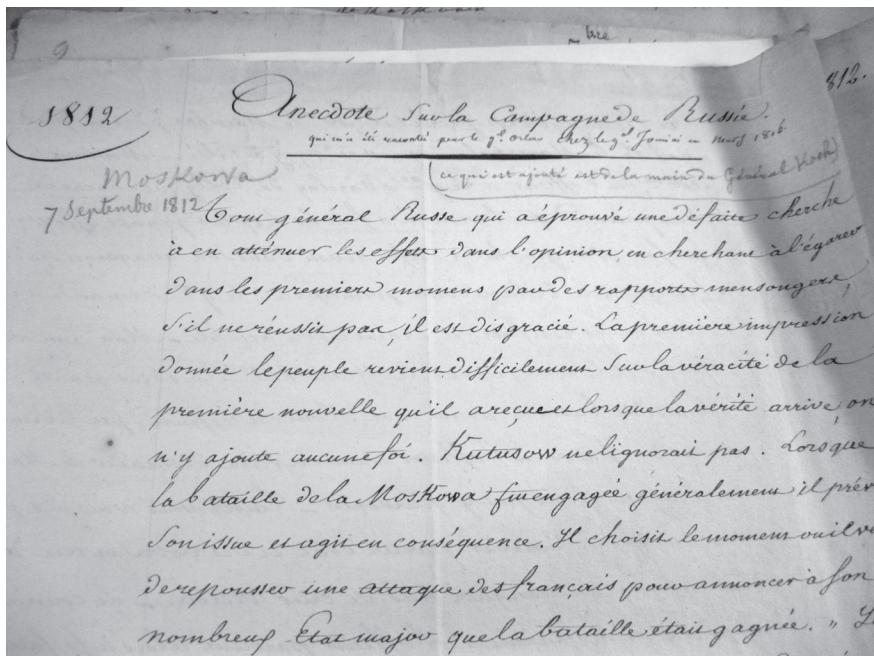 1812
812.
Anecdote Sur la Campagne de Russie.
qui m'a été racontée par le gal. Orlow chez le gal. Jomini en mars 1816.
(ce qui est ajouté est de la main du Général Koch)
Moskowa
7 Septembre 1812
Tout général Russe qui a éprouvé une défaite cherche
à en atténuer les effets dans l'opinion en cherchant à l'égarer
dans les premiers momens par des rapports mensongers,
S'il ne réussit pas, il est disgracié. La première impression
donnée le peuple revient difficilement Sur la véracité de la
première nouvelle qu'il a reçue et lorsque la vérité arrive on
n'y ajoute aucune foi. Kutusow ne lignorait pas. Lorsque
la bataille de la Moskowa fut engagée généralement il prév
Son issue et agit en conséquence. Il choisit le moment ou il v
de repousser une attaque des français pour annoncer à Son
nombreux Etat major que la bataille était gagnée. "